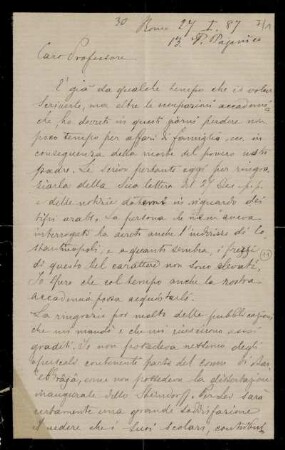 30 Roma 27 I. 87
13. P. Paganica
Caro Professore,
È già da qualche tempo che io volevo
scriverle, ma oltre le occupazioni accademiche
ho dovuto in questi giorni perdere non
poco tempo per affari di famiglia, ecc. in
conseguenza della morte del povero
Padre. Le scrivo pertanto oggi per ringra-
ziarla della Sua lettera del 2 Dec. p.p.
e delle notizie datemi in riguardo dei
tipi arabi. La persona che aveva
interrogata la aveva anche l'indirizzo di Co-
stantinopoli; e a quanto sembra, i prezzi
di questo bel carattere non sono elevati.
Io spero che col tempo anche la nostra
accademia possa acquistarli.
La ringrazio poi molto delle pubblicazioni
che mi mandò e che mi riuscirono assai
gradite. Io non possedeva nessuno degli
opuscoli contenenti parte del
come non possedeva la dissertazione
inaugurale dello Steindorff. Per Lei sarà
certamente una grande soddisfazione
il vedere che i suoi scolari, contribui